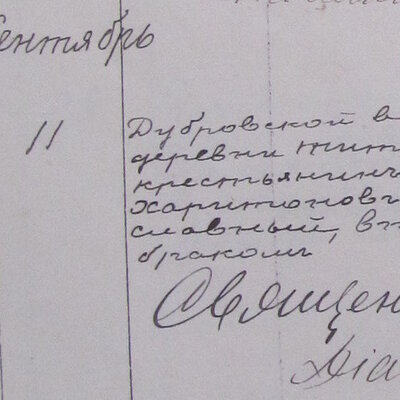 ентябрь
11
Дубровской в
деревни Тит
крестьянинъ
Харитоновъ
славный, вт
бракомъ
Священ
Діа